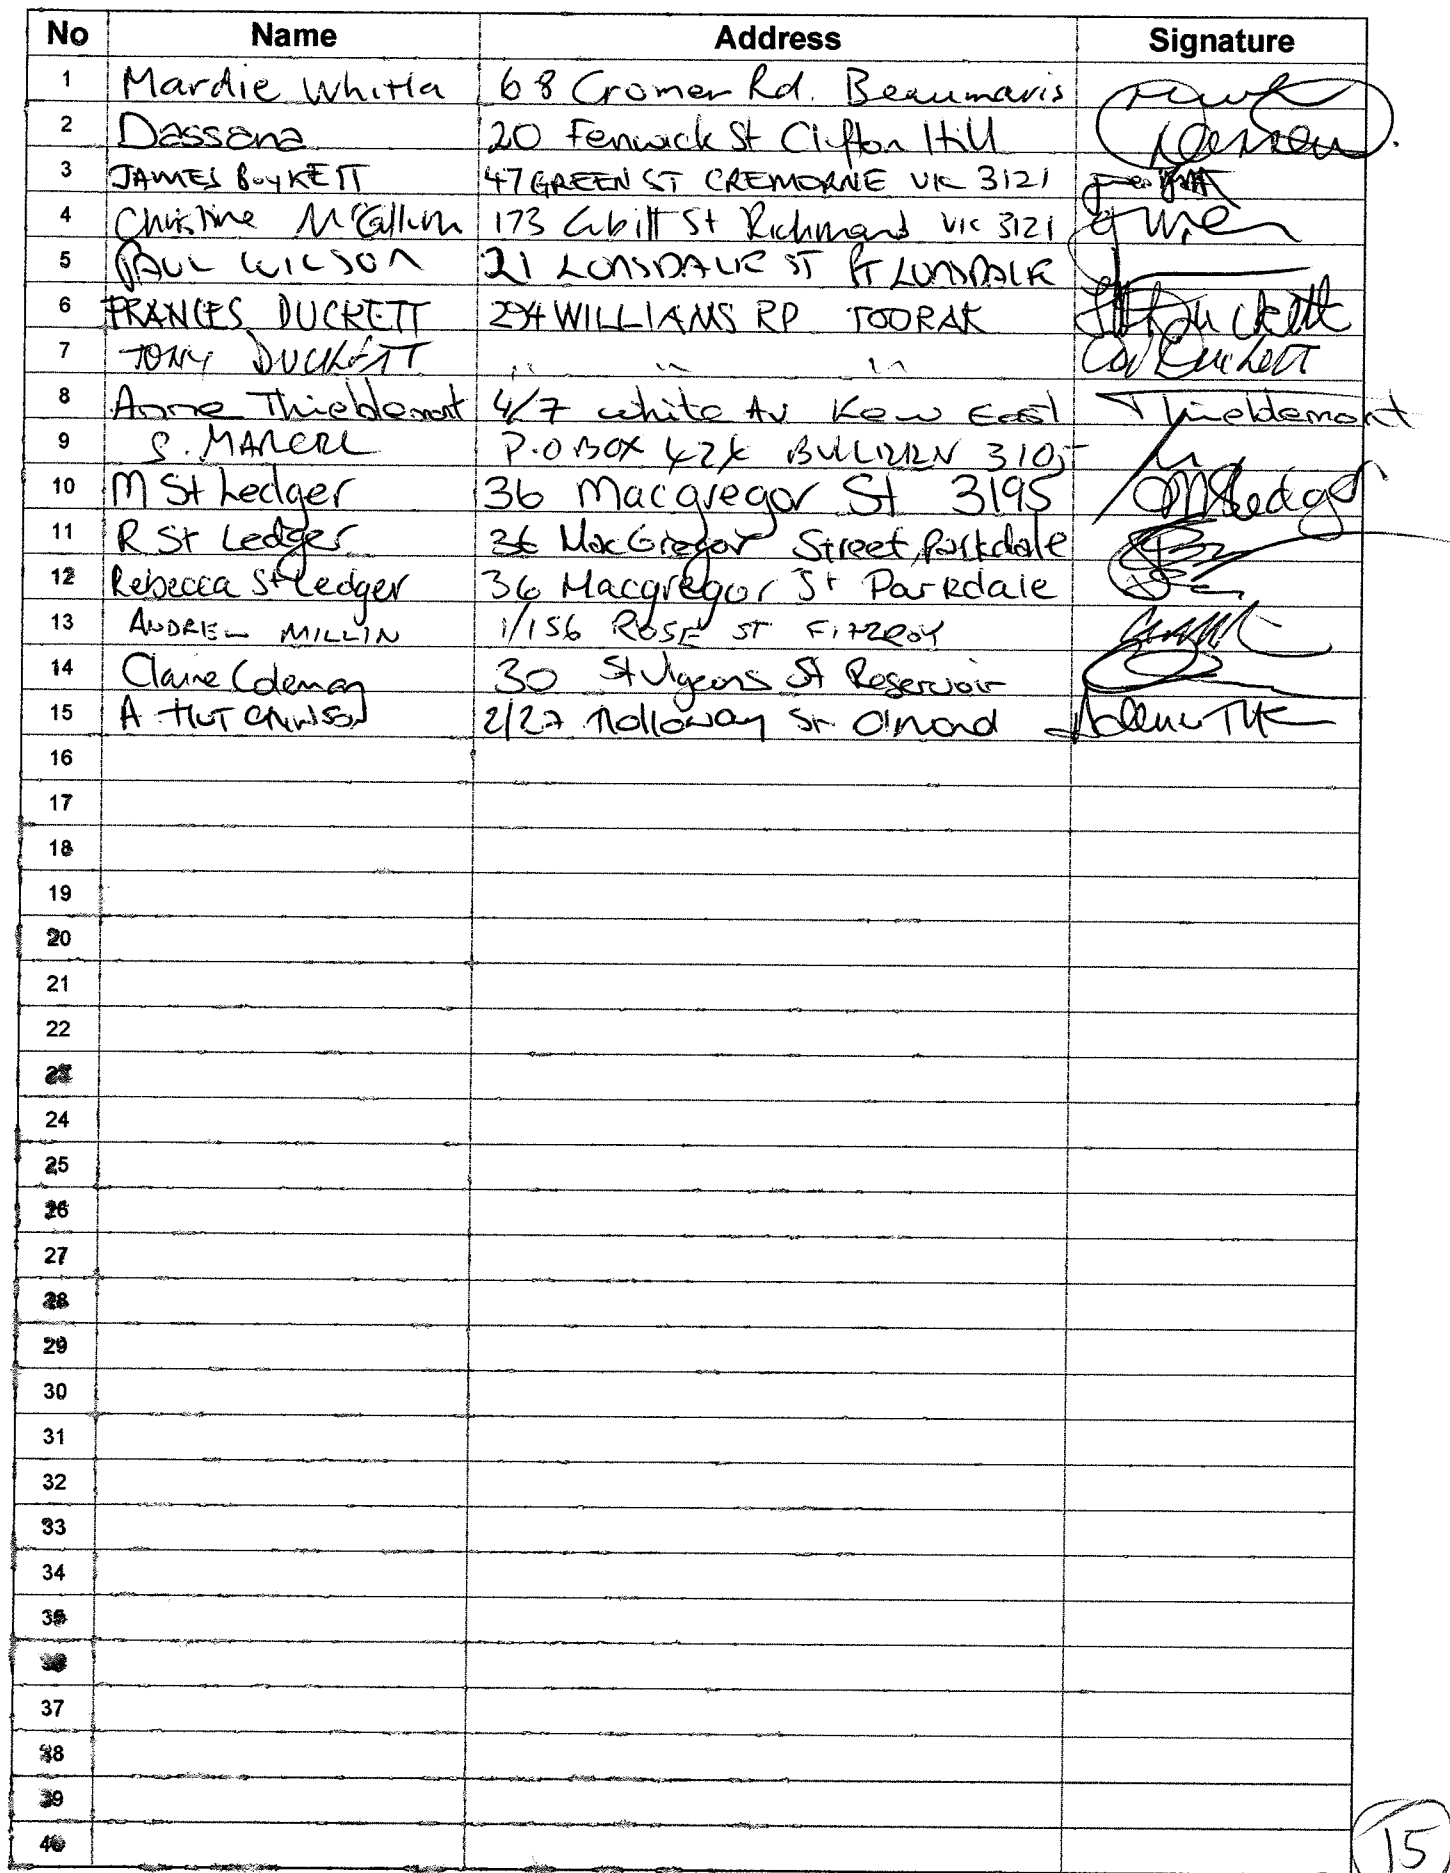 No Name Address Signature
1 Mardie Whitla 68 Cromer Rd. Beaumaris
2 Dassana 20 Fenwick St Clifton Hill
3 JAMES BOYKETT 47 GREEN ST CREMORNE VIC 3121
4 Christine McCallum 173 Cubitt St Richmond VIC 3121
5 PAUL WILSON 21 LONSDALE ST PT LONSDALE
6 FRANCES DUCKETT 294 WILLIAMS RD TOORAK
7 TONY DUCKETT " " "
8 Anne Thieblemont 4/7 White Av Kew East Thieblemont
9 S. P.O BOX 424 BULLEEN 3105
10 M St Ledger 36 Macgregor St 3195 MStLedger
11 R St Ledger 36 MacGregor Street, Parkdale
12 Rebecca St Ledger 36 Macgregor St Parkdale
13 ANDREW MILLIN 1/156 ROSE ST FITZROY
14 Claire Coleman 30 St Vigeons St Reservoir
15 A HUTCHINSON 2/27 Holloway St Ormond
16
17
18
19
20
21
22
23
24
25
26
27
28
29
30
31
32
33
34
35
36
37
38
39
40
15